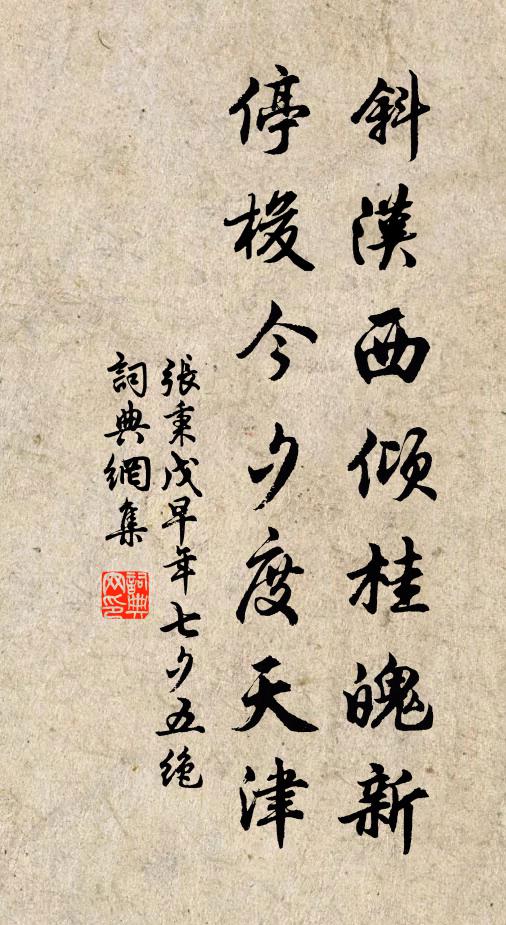 斜漢西傾桂魄新
停梭今夕度天津
張秉戊早年七夕五絶
詞典網集
詞典
网印